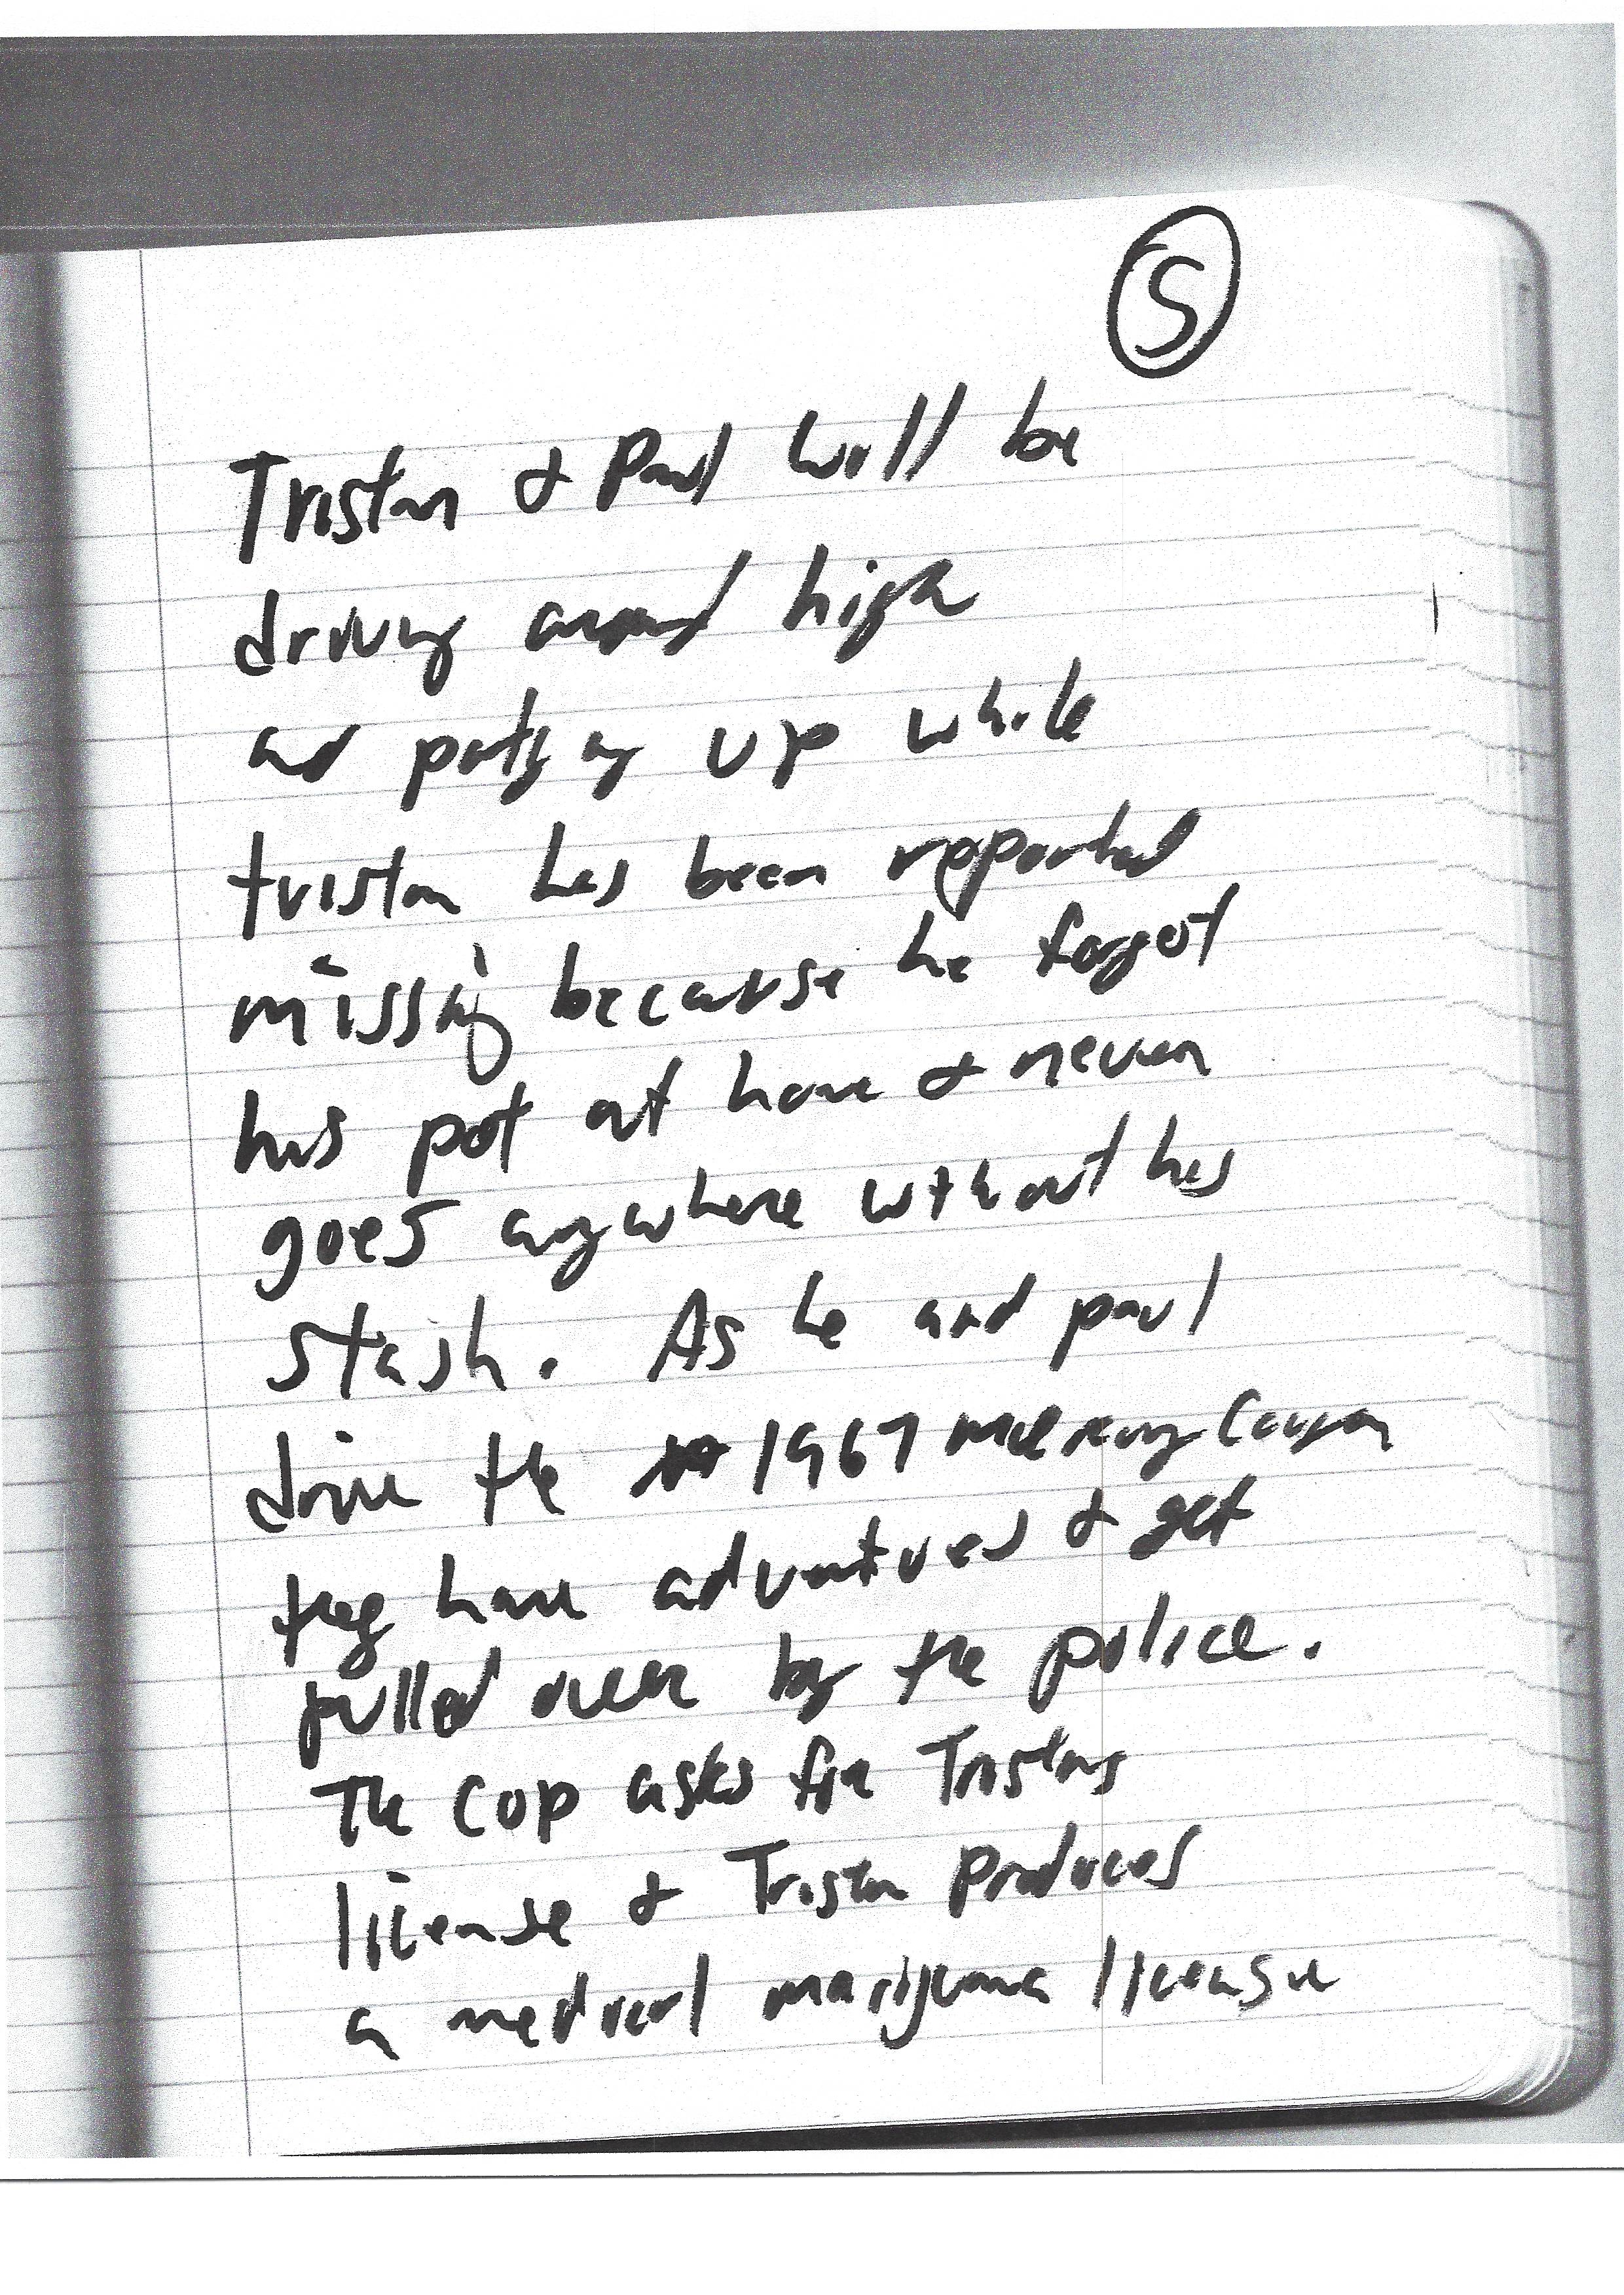 S
Tristan & Paul will be
driving around high
and partying up while
tristan has been reported
missing because he forgot
his pot at home & never
goes anywhere without his
stash. As he and paul
drive the 1967 Mercury Cougar
they have adventures & get
pulled over by the police.
The cop asks for Tristans
license & Tristan produces
a medical marijuana license